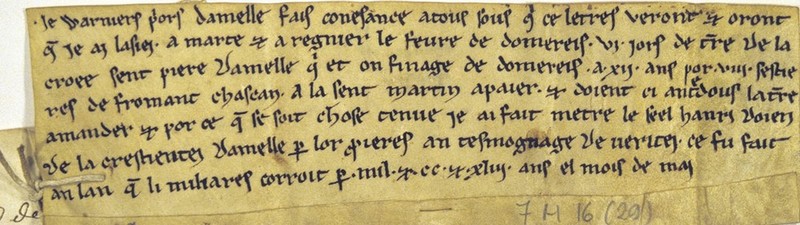 Je warniers p͛ors damelle fais conesance atous sous q̃ ce letres veront ⁊ oront
q̃ je ai lasiei · a marce ⁊ a regnier le feure de domereis · vi · jors de t̃re de la
croee sent piere damelle q̓ et on finage de domereis · a · xii · ans por · viii · sestie
res de fromant chascan · a la sent martin apaier · ⁊ doient ci
amander ⁊ por ce q̃ se soit chose tenue je ai fait metre le seel hanri doien
de la crestientei damelle p̱ lor p̓ieres an tesmognage de veritei · ce fu fait
an lan q̃ li miliares corroit p̱ · mil · ⁊ · cc · ⁊ · xliii · ans el mois de mai
7 H 16 (29)